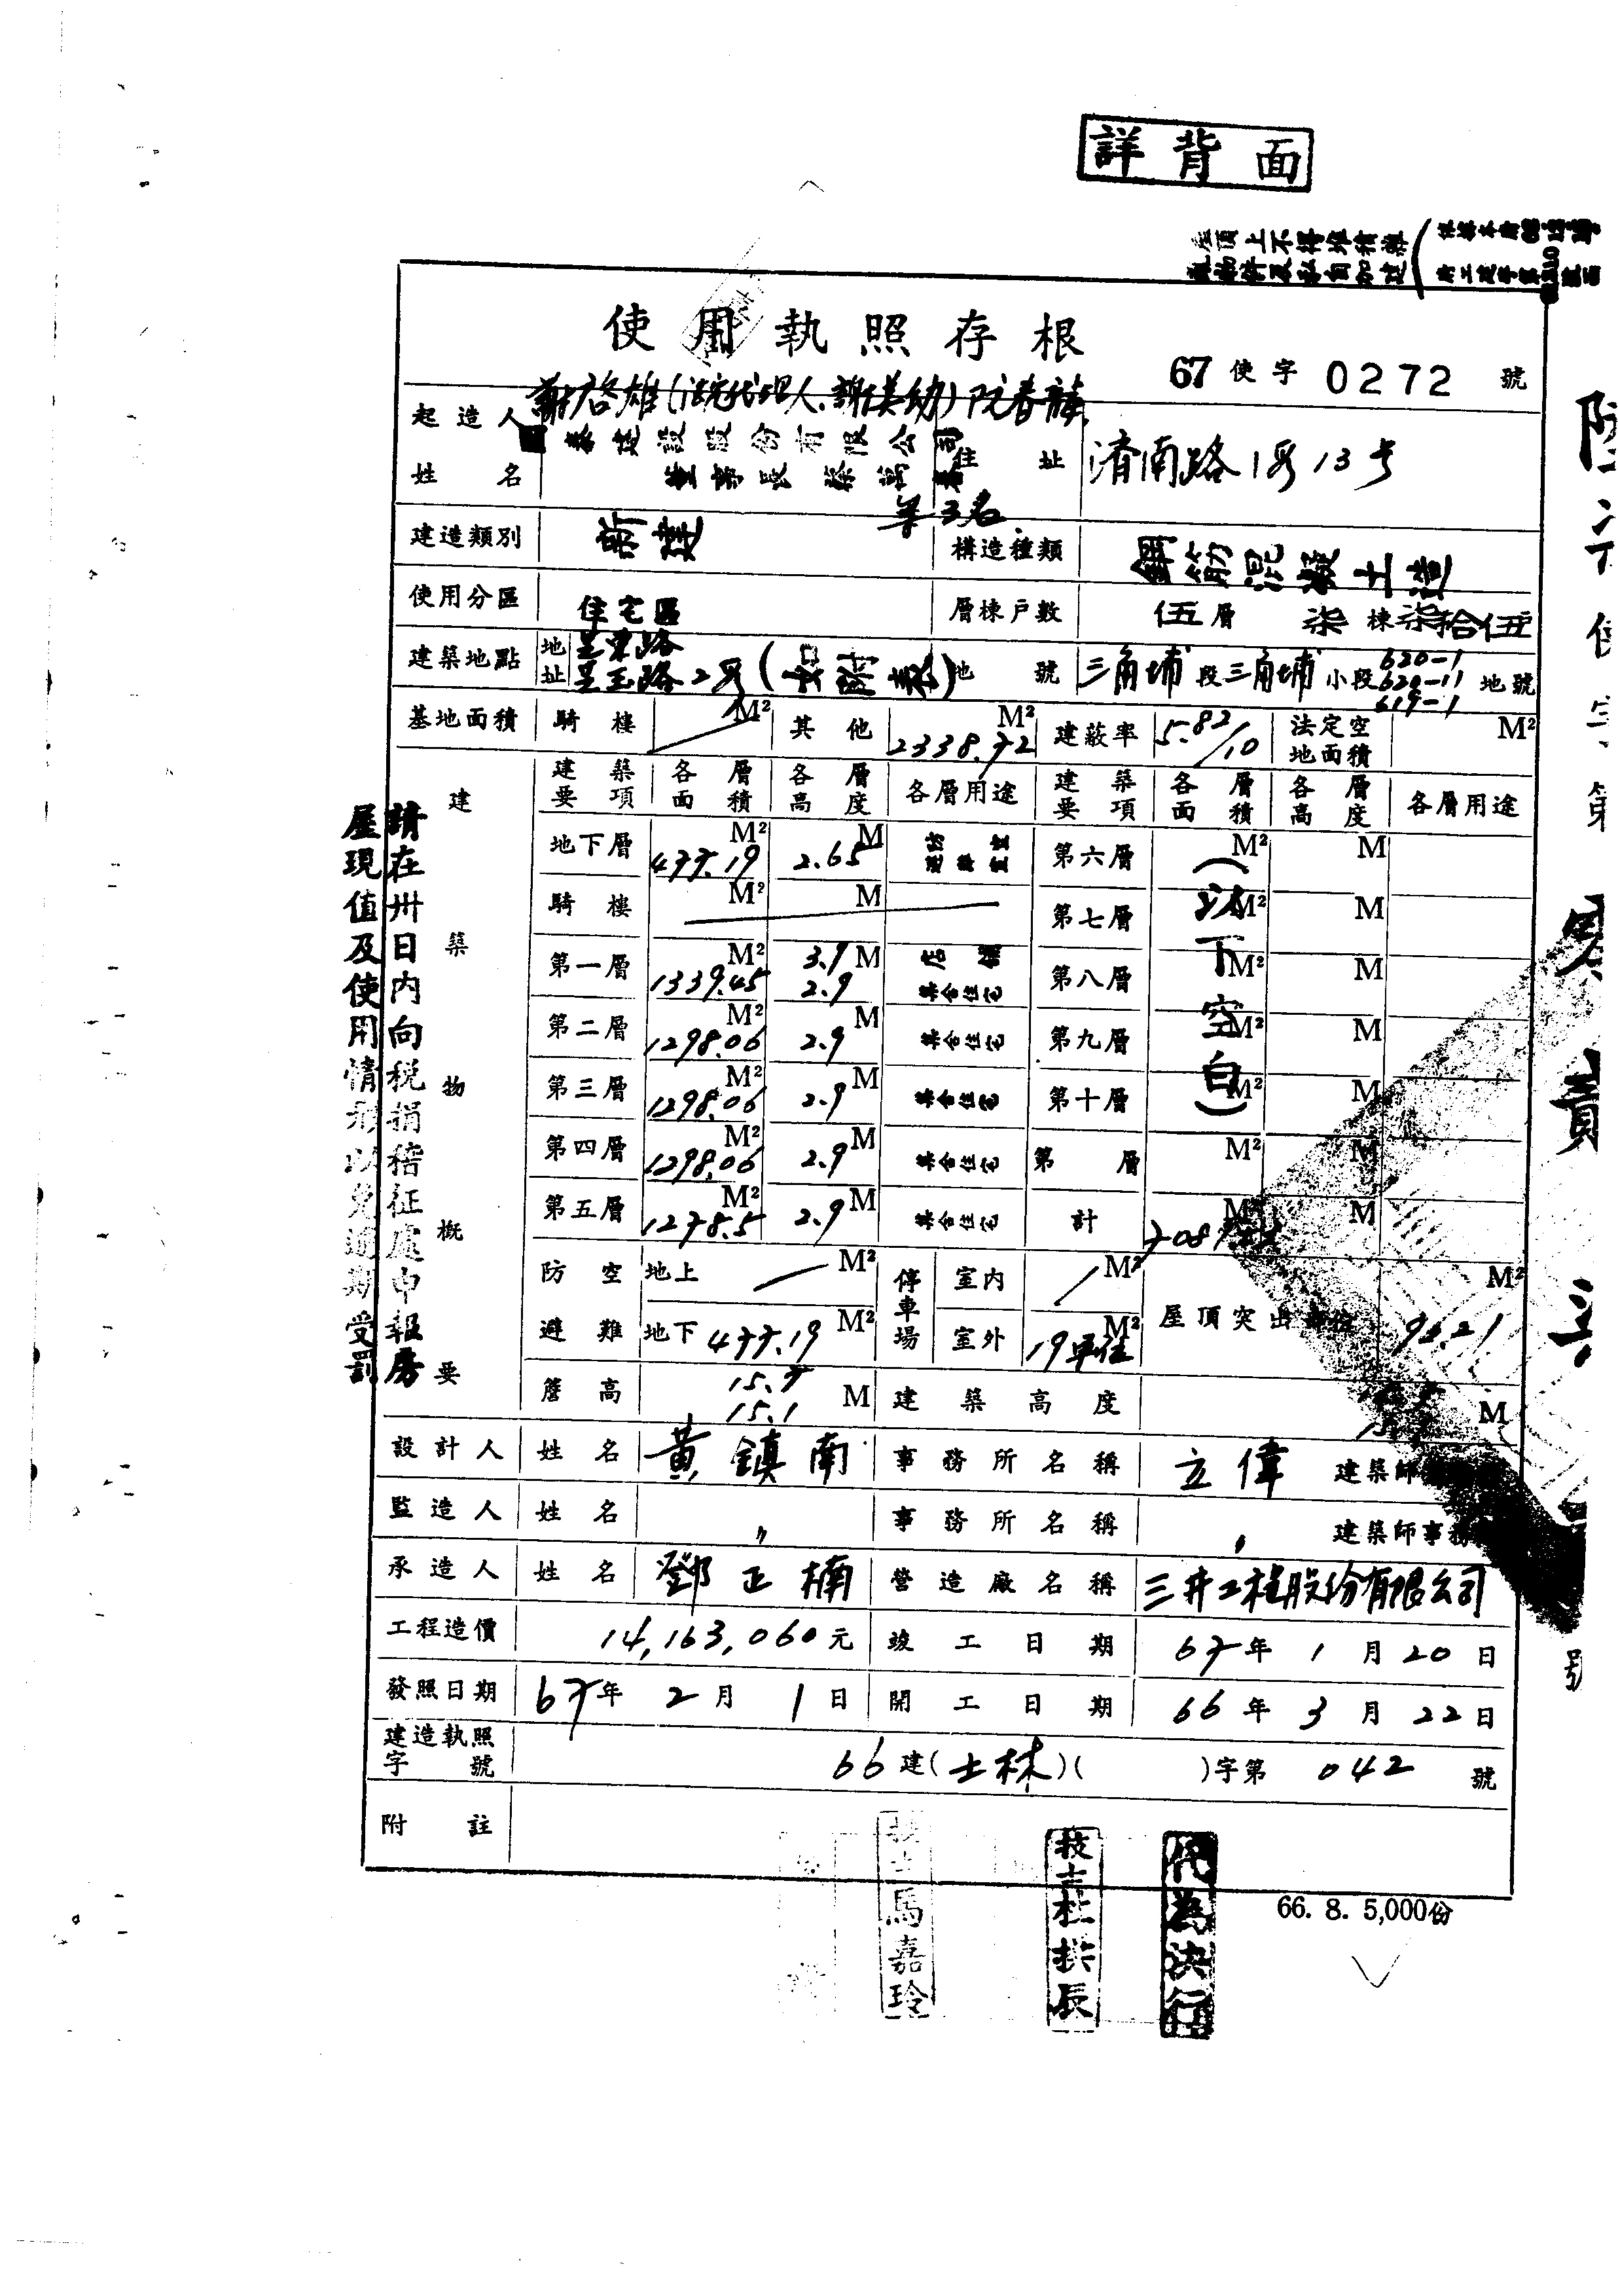 詳背面
屋頂上不得堆積雜
使用執照存根
67使字0272號
起造人姓名
啓雄(法定代理人:謝美幼)阮春龍
建設股份有限公司
董事長蔡萬春
等3名
住址 濟南路1段13号
建造類別 新建 構造種類 鋼筋混凝土造
使用分區 住宅區 層棟戶數 伍層 柒棟柒拾伍
建築地點 地址 至東路
至玉路2段 地號 三角埔段三角埔小段620-1 620-11 619-1地號
基地面積 騎樓 M² 其他 2338.72 M² 建蔽率 5.82/10 法定空地面積 M²
建築物概要
建築要項 各層面積 各層高度 各層用途 建築要項 各層面積 各層高度 各層用途
地下層 477.19 M² 2.65 M 第六層 M² M
騎樓 M² M 第七層 M² M
第一層 1339.45 M² 3.9 2.9 M 店舖 集合住宅 第八層 M² M
第二層 1298.06 M² 2.9 M 集合住宅 第九層 M² M
第三層 1298.06 M² 2.9 M 集合住宅 第十層 M² M
第四層 1298.06 M² 2.9 M 集合住宅 第 層 M² M
第五層 1278.5 M² 2.9 M 集合住宅 計 M² M
(以下空白)
防空避難 地上 M² 停車場 室內 M² 屋頂突出 M²
地下 477.19 M² 室外 19車位 M²
簷高 15.7 15.1 M 建築高度 M
設計人 姓名 黃鎮南 事務所名稱 立偉 建築師
監造人 姓名 〃 事務所名稱 〃 建築師事務
承造人 姓名 鄧正楠 營造廠名稱 三井工程股份有限公司
工程造價 14,163,060元 竣工日期 67年1月20日
發照日期 67年2月1日 開工日期 66年3月22日
建造執照字號 66建(士林)( )字第042號
附註
請在卅日內向稅捐稽征處申報房
屋現值及使用情形以免逾期受罰
馬嘉玲
技士杜拱辰
代為決行
66. 8. 5,000份